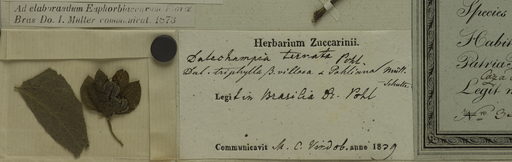 Ad elaborandum Euphorbiacearum Florae
Bras Do. I. Muller communicat. 1873
Herbarium Zuccarinii.
Dalechampia ternata Pohl.
Dal. triphylla β. villosa Pohliana Müll.
Legit in Brasilia Dr. Pohl
Communicavit M. C. Vindob. anno 1839
Species
Habit
Patria
Legit